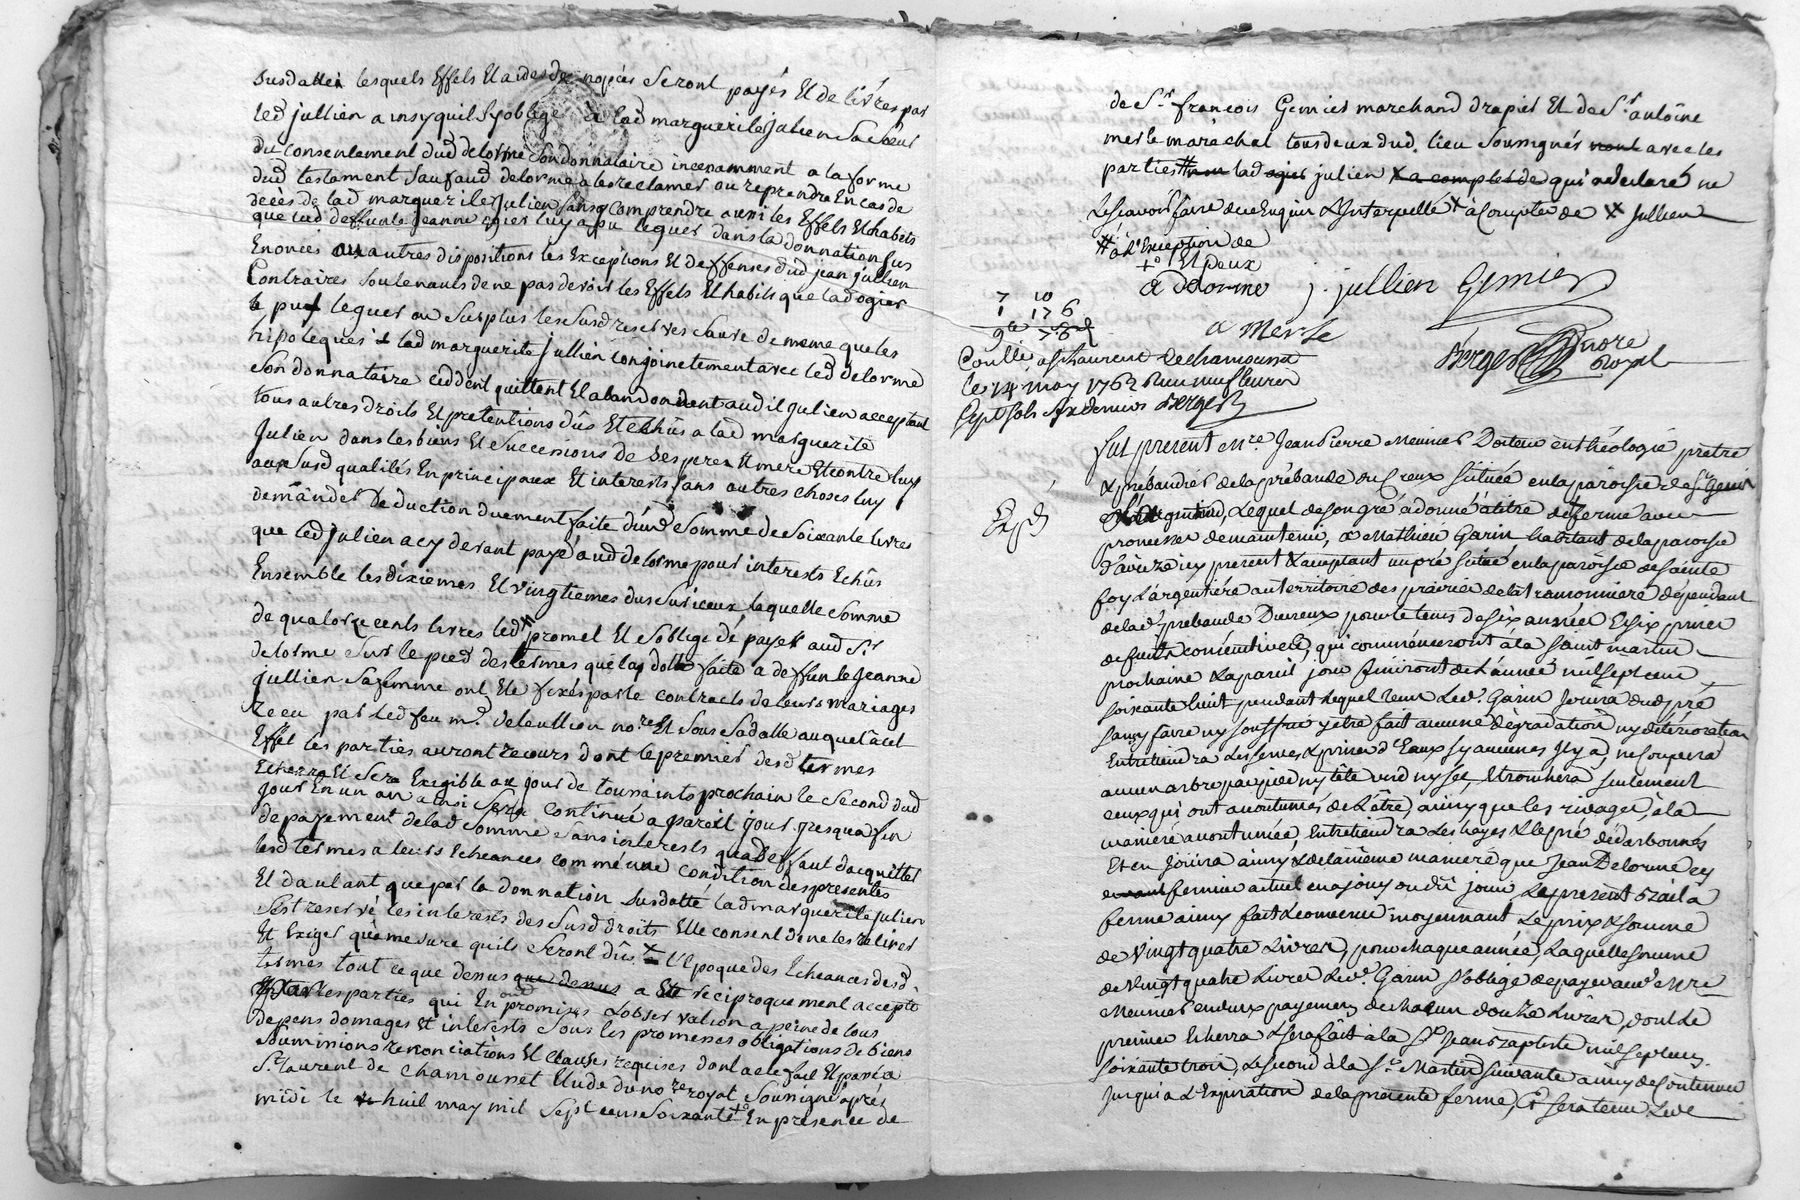 susdattés lesquels Effels Et aides de nopces Seront payés Et delivrés par
led jullien ainsy quil Syoblige à lad marguerite Julien Sa sœur
du consentement dud delorme Son donnataire incenamment a la forme
dud testament Sauf aud delorme a les reclamer ou reprendre En cas de
décès de lad marguerite Julien Sans y comprendre aussi les Effels Et habits
que lad deffunte Jeanne ogier luy a pu leguer dans la donnation Sus
Enoncée ou autres dispositions les Exceptions Et deffenses dud jean jullien
Contraires Soutenants de ne pas devoir les Effels Et habits que lad ogier
a pu leguer au Surplus les Susd reserves Sauve de meme que les
hipoteques lad marguerite jullien conjoinctement avec led delorme
Son donnataire cèddent quittent Et abandondent aud Julien acceptant
tous autres droits Et pretentions dûs Et Echûs a lad marguerite
Julien dans les biens Et Successions de Ses pere Et mere Et contre luy
aux Susd qualités En principaux Et interests Sans autres choses luy
demander Deduction duement faite d'une Somme de Soixante livres
que led Julien a cy devant payé aud delorme pour interests Echûs
Ensemble les dixiemes Et vingtiemes dus Sur iceux, laquelle Somme
de quatorze cents livres led promet Et S oblige dé payer aud Sr
delorme Sur le pied des termes que la dotte faite a deffunte Jeanne
jullien Sa femme ont Eté fixés par le contracts de leurs mariages
recu par led feu me. deleullion nore Et Sous Sa datte auquel à cet
Effet les parties auront recours dont le premier desd termes
Echerra Et Sera Exigible au jour de toussaints prochain le Second dud
jour En un an ainsi Sera continué a pareil jour jusqua fin
de payement de lad Somme Sans interests qua deffaut dacquitter
lesd termes a leurs Echeances comme une condition des presentes
Et dautant que par la donnation Susdatté lad marguerite Julien
Sest reservé les interests des Susd droits Elle consent de ne les retirer
Et Exiger qu'a mesure quils Seront dûs X a l'Epoque des Echeances desd.
termes tout ce que dessus que dessus a Eté reciproquement accepté
par les parties qui En ont promises Lobservation a peine de tous
depens domages Et interests Sous les promesses obligations de biens
Soumissions renonciations Et clauses requises dont acte fait Et passé a
St laurent de chamousset Etude du nore royal Soussigné après
midi le huit may mil Sept cens Soixante +o En presence de
de Sr francois Gemier marchand drapier Et de Sr antoine
merle maréchal tous deux dud. lieu Soussignés avec les
parties # non lad ogier julien X a compter de qui a declaré ne
le Scavoir faire de ce Enquis & Interpellé X à compter de X jullien
# à l'Exception de
+o Et deux
A Delorme j. jullien Gemier
7 10
1 17 6
9 7 6
a Merle
Berger nore royal
Conllé a St Laurent de chamousset
le 14 may 1762 Reçu neuf livres
Sept Sols Six deniers Berger
fut present Mre. Jean Pierre Meunier Docteur en théologie prêtre
& prébandier de la prébande du Creux Située en la paroisse de St Genis
Expd
L'argentiere, Lequel de Son gré à donné à titre de ferme avec
promesse de maintenir, à Mathieu Garin habitant de la paroisse
d'aveize icy present & acceptant un pré Situé en la paroisse de Sainte
foy L'argentiére au territoire des prairies de la tramonniere dépendant
de lad. prebande Du creux pour le tems de Six années & Six prises
de fruits consécutivels, qui commenceront à la Saint martin
prochaine & a pareil jour finiront de L'année mil Sept cens
Soixante huit pendant Lequel tems Led. Garin Joüira dud pré
Sans y faire ny Souffrir y être fait aucune dégradation ny détérioration
Entretiendra Les Serves & prises d'Eaux Sy aucunes Il y a, ne coupera
aucun arbre par pied ny tête verd ny Séc, Etronchera Seulement
ceux qui ont accoutumés de L'être, ainsy que les rivages, à la
manière accoutumée, Entretiendra Les hayes & le pré dédarbonnés
Et en Joüira ainsy & de la même maniere que Jean Delorme cy
fermier actuel en a joüy ou dû joüir Le present bail à
ferme ainsy fait & convenu moyennant Le prix & Somme
de Vingt quatre Livres, pour chaque année, Laquelle Somme
de Vingt quatre Livres Led. Garin S'oblige de payer aud. Mre
Meunier en deux payemens de chacun douze Livres, dont Le
premier Echerra & Sera fait à la St Jean Baptiste mil Sept cens
Soixante trois, Le Second à la St Martin Suivante ainsy de Continuer
Jusqu'a L'Expiration de la présente ferme, Sera tenu Led